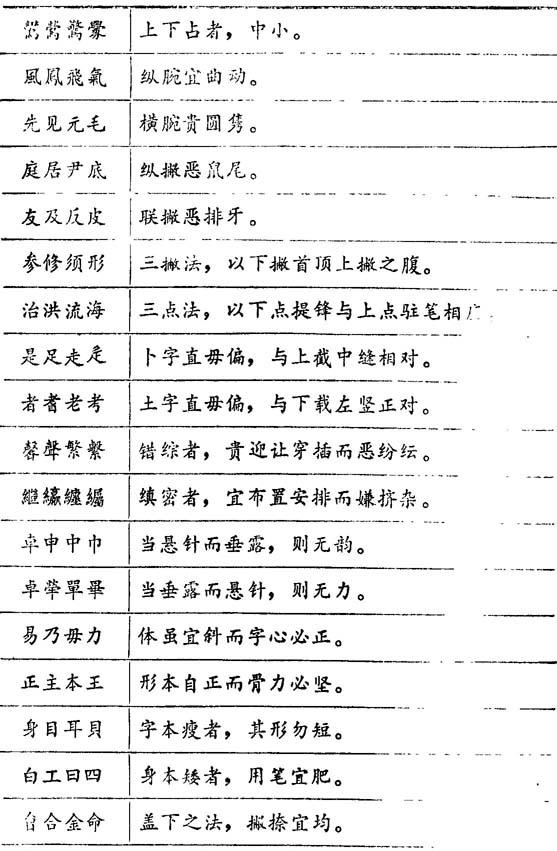 鶯鶯驚釁 上下占者，中小。
風鳳飛氣 纵腕宜曲动。
先见元毛 横腕贵圆隽。
庭居尹底 纵撇恶鼠尾。
友及反皮 联撇恶排牙。
参修须形 三撇法，以下撇首顶上撇之腹。
治洪流海 三点法，以下点提锋与上点驻笔相应
是足走辵 卜字直毋偏，与上截中缝相对。
者耆老考 土字直毋偏，与下载左竖正对。
馨聲繁繫 错综者，贵迎让穿插而恶纷纭。
繼纛纏 缜密者，宜布置安排而嫌挤杂。
卓申中巾 当悬针而垂露，则无韵。
卓犖單畢 当垂露而悬针，则无力。
易乃毋力 体虽宜斜而字心必正。
正主本王 形本自正而骨力必坚。
身目耳貝 字本瘦者，其形勿短。
白工曰四 身本矮者，用笔宜肥。
會合金命 盖下之法，撇捺宜均。